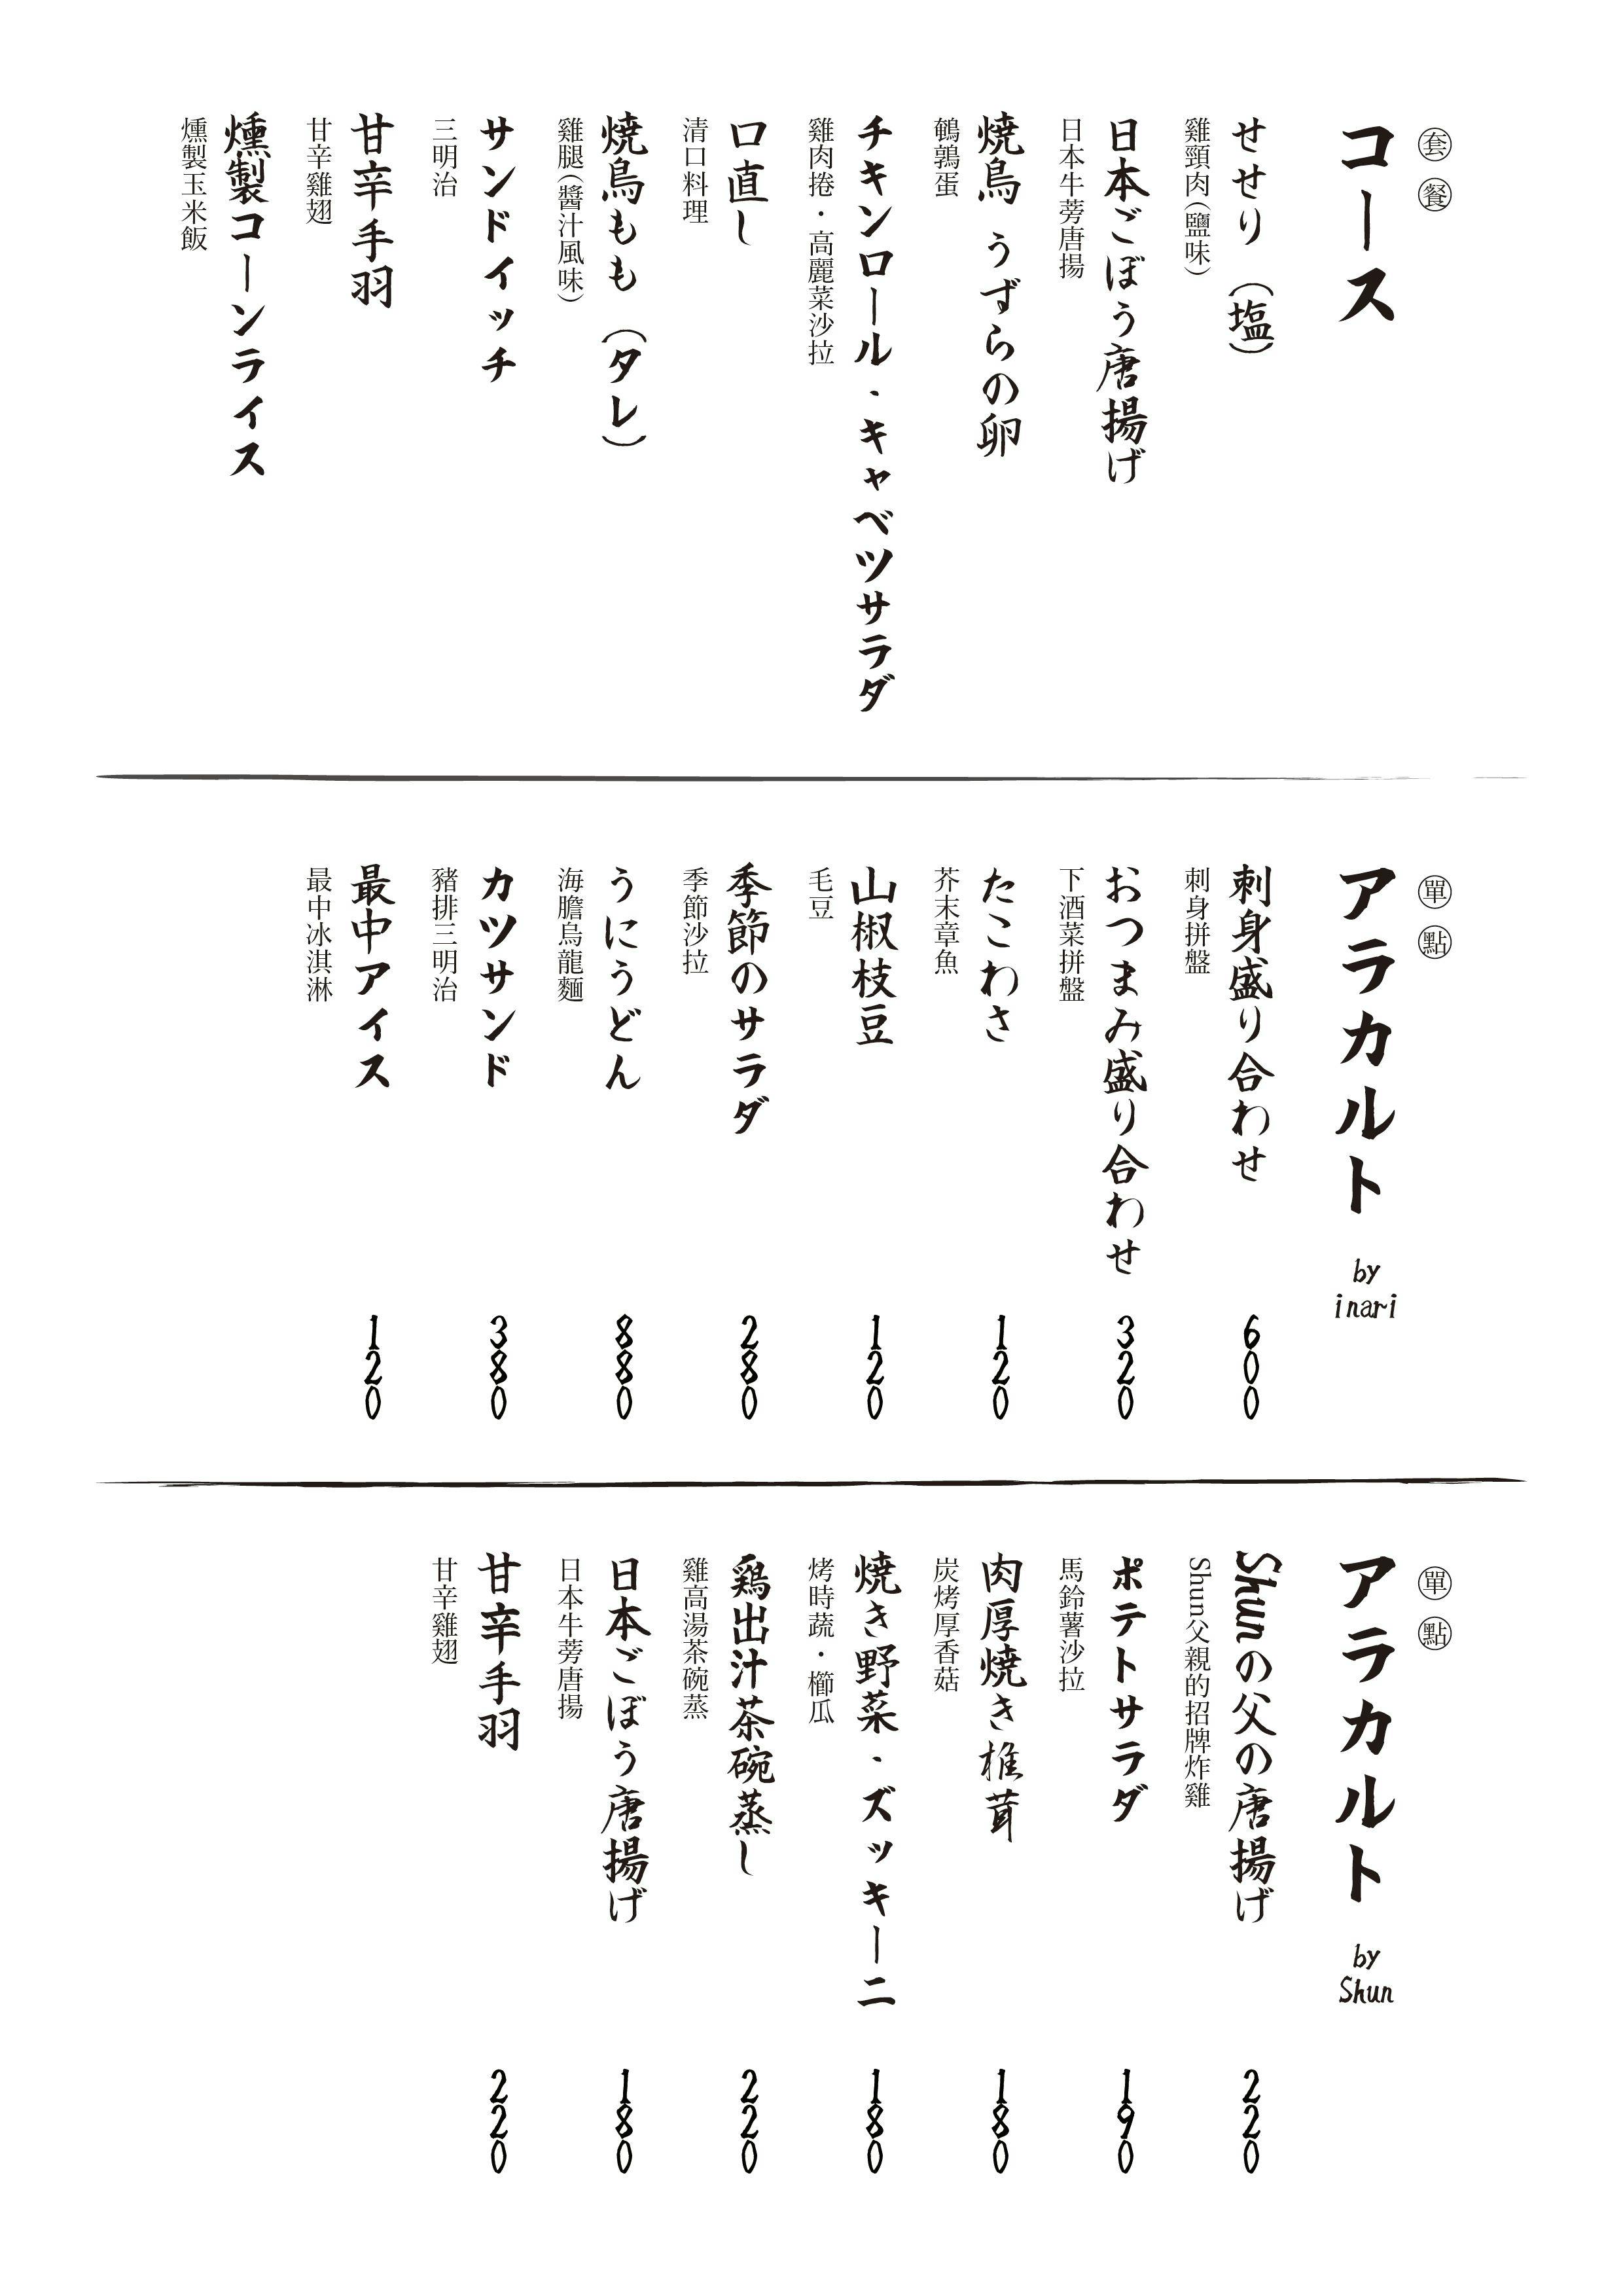 套餐
コース
せせり（塩）
雞頸肉（鹽味）
日本ごぼう唐揚げ
日本牛蒡唐揚
焼鳥 うずらの卵
鵪鶉蛋
チキンロール・キャベツサラダ
雞肉捲・高麗菜沙拉
口直し
清口料理
焼鳥もも（タレ）
雞腿（醬汁風味）
サンドイッチ
三明治
甘辛手羽
甘辛雞翅
燻製コーンライス
燻製玉米飯
單點
アラカルト by inari
刺身盛り合わせ 600
刺身拼盤
おつまみ盛り合わせ 320
下酒菜拼盤
たこわさ 120
芥末章魚
山椒枝豆 120
毛豆
季節のサラダ 280
季節沙拉
うにうどん 880
海膽烏龍麵
カツサンド 380
豬排三明治
最中アイス 120
最中冰淇淋
單點
アラカルト by Shun
Shunの父の唐揚げ 220
Shun父親的招牌炸雞
ポテトサラダ 190
馬鈴薯沙拉
肉厚焼き椎茸 180
炭烤厚香菇
焼き野菜・ズッキーニ 180
烤時蔬・櫛瓜
鶏出汁茶碗蒸し 220
雞高湯茶碗蒸
日本ごぼう唐揚げ 180
日本牛蒡唐揚
甘辛手羽 220
甘辛雞翅